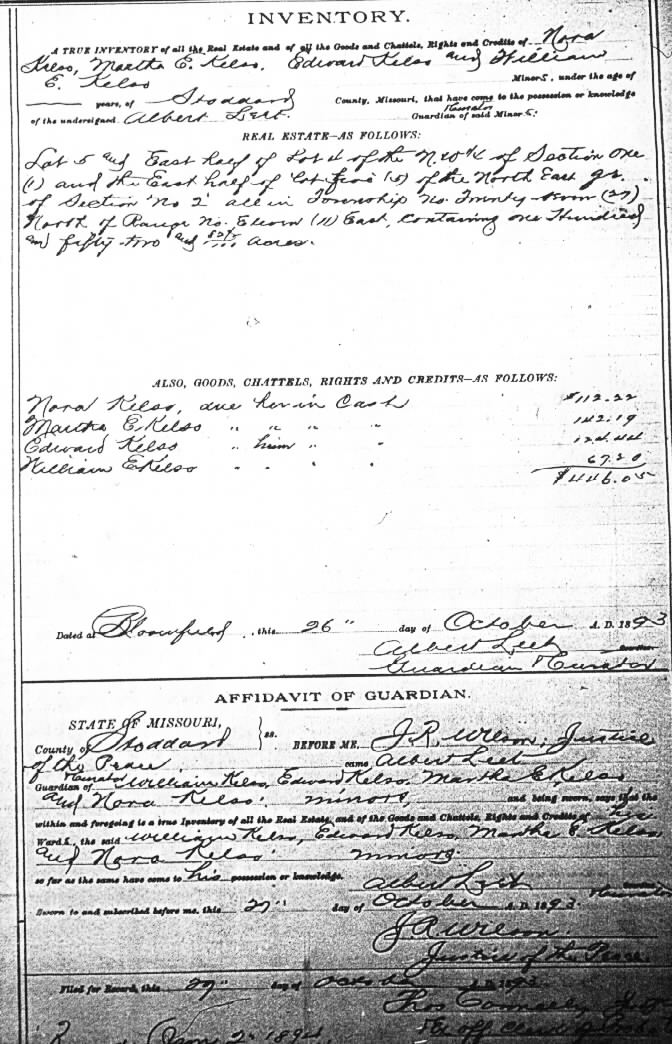 INVENTORY.
A TRUE INVENTORY of all the Real Estate and of all the Goods and Chattels, Rights and Credits of Nora
Kelso, Martha E. Kelso, Edward Kelso and William
E. Kelso Minors, under the age of
years, of Stoddard County, Missouri, that have come to the possession or knowledge
of the undersigned Albert Leet. Curator Guardian of said Minors:
REAL ESTATE—AS FOLLOWS:
Lot 5 and East half of Lot 4 of the N W 1/4 of Section One
(1) and the East half of Lot five (5) of the North East qr.
of Section No 2 all in Township No. Twenty-seven (27)
North of Range No. Eleven (11) East, Containing one Hundred
and fifty-two and acres.
ALSO, GOODS, CHATTELS, RIGHTS AND CREDITS—AS FOLLOWS:
Nora Kelso, due her in Cash $112.22
Martha E. Kelso " " " " 142.19
Edward Kelso " him " " 124.44
William E Kelso " " " " 67.20
$446.05
Dated at Bloomfield, this 26" day of October A. D. 1893
Albert Leet
Guardian & Curator
AFFIDAVIT OF GUARDIAN.
STATE OF MISSOURI,
County of Stoddard } ss. BEFORE ME, J. R. Wilson, Justice
of the Peace came Albert Leet
Curator
Guardian of William Kelso, Edward Kelso, Martha E. Kelso
and Nora Kelso, minors, and being sworn, says that the
within and foregoing is a true Inventory of all the Real Estate, and of the Goods and Chattels, Rights and Credits of his
Wards, the said William Kelso, Edward Kelso, Martha E Kelso
and Nora Kelso minors
so far as the same have come to his possession or knowledge.
Albert Leet Curator
Sworn to and subscribed before me, this 27" day of October A. D. 1893.
J. R. Wilson.
Justice of the Peace.
Filed for Record, this 27" day of October A.D. 1893
Thos Connelly
Ex off Clerk of
1894